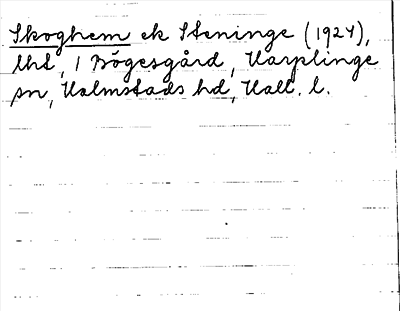 Skoghem ek Steninge (1924),
lht, 1 Bögesgård, Harplinge
sn, Halmstads hd, Hall. l.